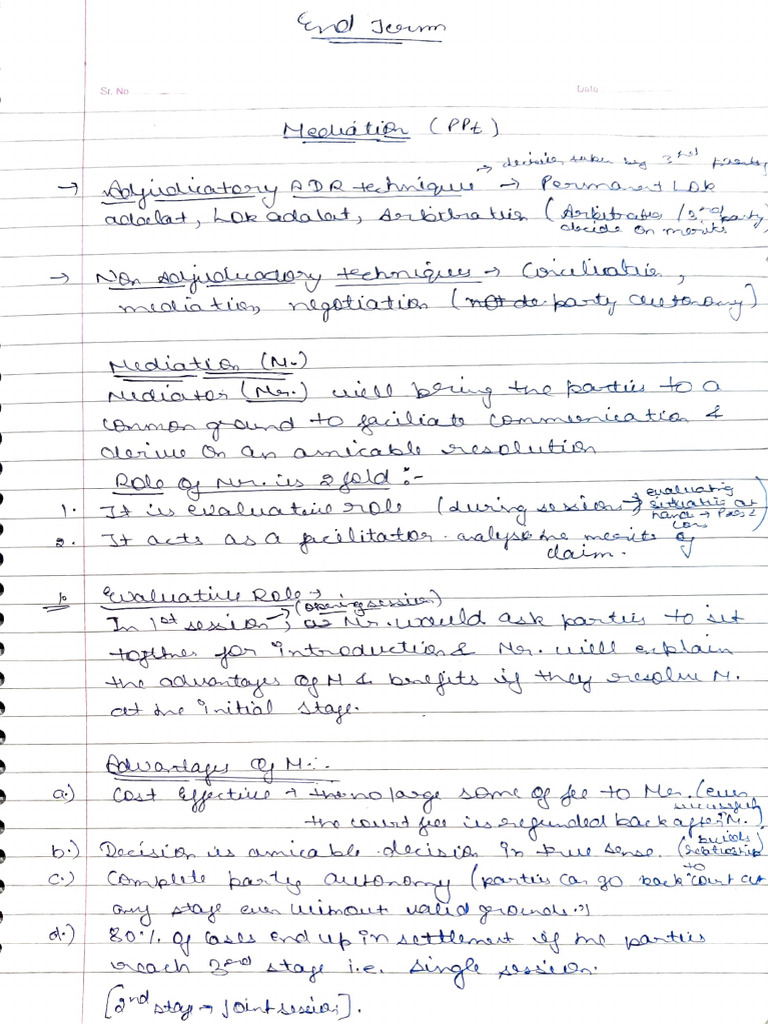 End Term
Sr. No. Date
Mediation (PPt)
→ decision taken by 3rd party
→ Adjudicatory ADR technique → Permanent Lok
adalat, Lok adalat, Arbitration (Arbitrator / 3rd party
decide on merits
→ Non Adjudicatory techniques → Conciliation,
mediation, negotiation (not de party autonomy)
Mediation (M.)
Mediator (Mr.) will bring the parties to a
common ground to faciliate communication &
derive on an amicable resolution
Role of Mr. is 2 fold :-
1. It is evaluative role (during session → evaluating
situation at
hand → Pros &
cons)
2. It acts as a facilitator analyse the merits of
claim.
1. Evaluative Role →
(opening session)
In 1st session → Mr. would ask parties to sit
together for introduction & Mr. will explain
the advantages of M & benefits if they resolve M.
at the initial stage.
Advantages of M:-
a.) Cost Effective → no large some of fee to Mr. (even
successfully
the court fee is refunded back after M.)
b.) Decision is amicable decision in true sense. (builds
relationship
c.) Complete party autonomy (parties can go back to court at
any stage even without valid grounds.)
d.) 80% of cases end up in settlement if the parties
reach 3rd stage i.e. single session.
[2nd stage → joint session].